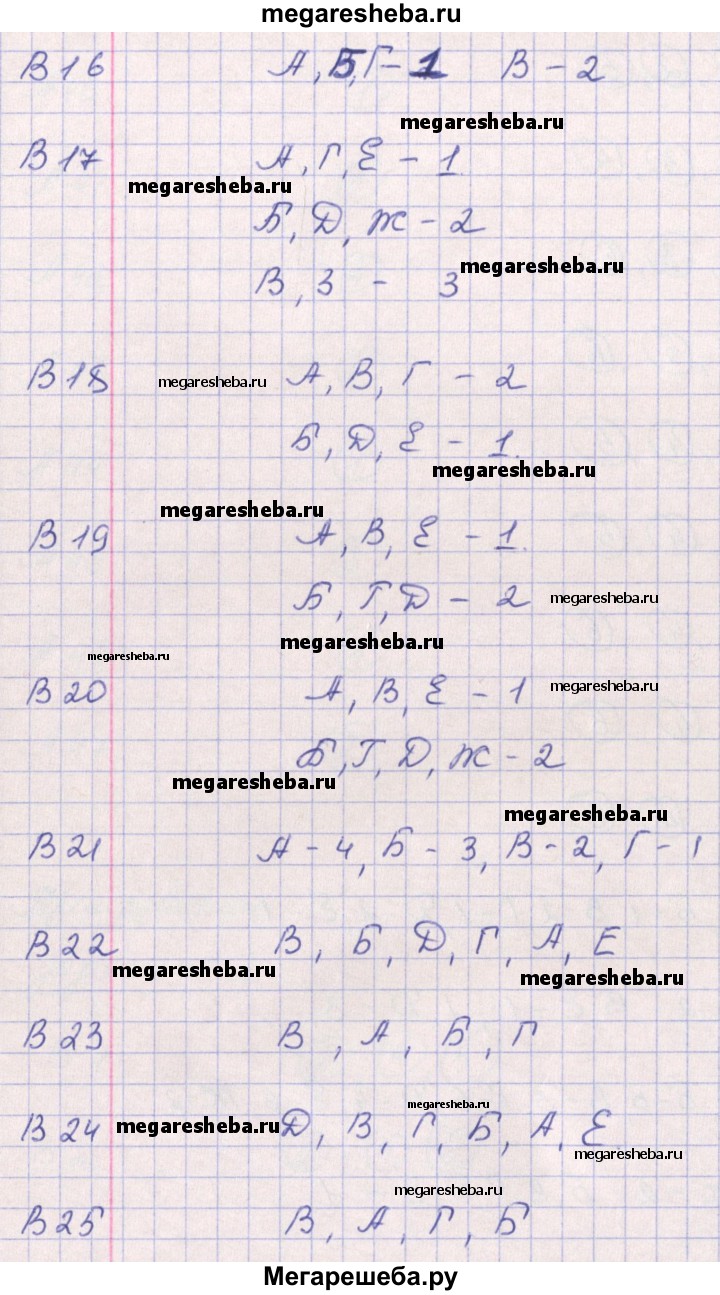 megaresheba.ru
В16 А, Б, Г - 1 В - 2
megaresheba.ru
В17 А, Г, Е - 1.
megaresheba.ru
Б, Д, Ж - 2
megaresheba.ru
В, З - 3
В18 megaresheba.ru А, В, Г - 2
Б, Д, Е - 1.
megaresheba.ru
megaresheba.ru
В19 А, В, Е - 1.
Б, Г, Д - 2 megaresheba.ru
megaresheba.ru
megaresheba.ru
В20 А, В, Е - 1 megaresheba.ru
Б, Г, Д, Ж - 2
megaresheba.ru
megaresheba.ru
В21 А - 4, Б - 3, В - 2, Г - 1
В22 В, Б, Д, Г, А, Е
megaresheba.ru
megaresheba.ru
В23 В, А, Б, Г
megaresheba.ru
В24 megaresheba.ru Д, В, Г, Б, А, Е.
megaresheba.ru
megaresheba.ru
В25 В, А, Г, Б
Мегарешеба.ру